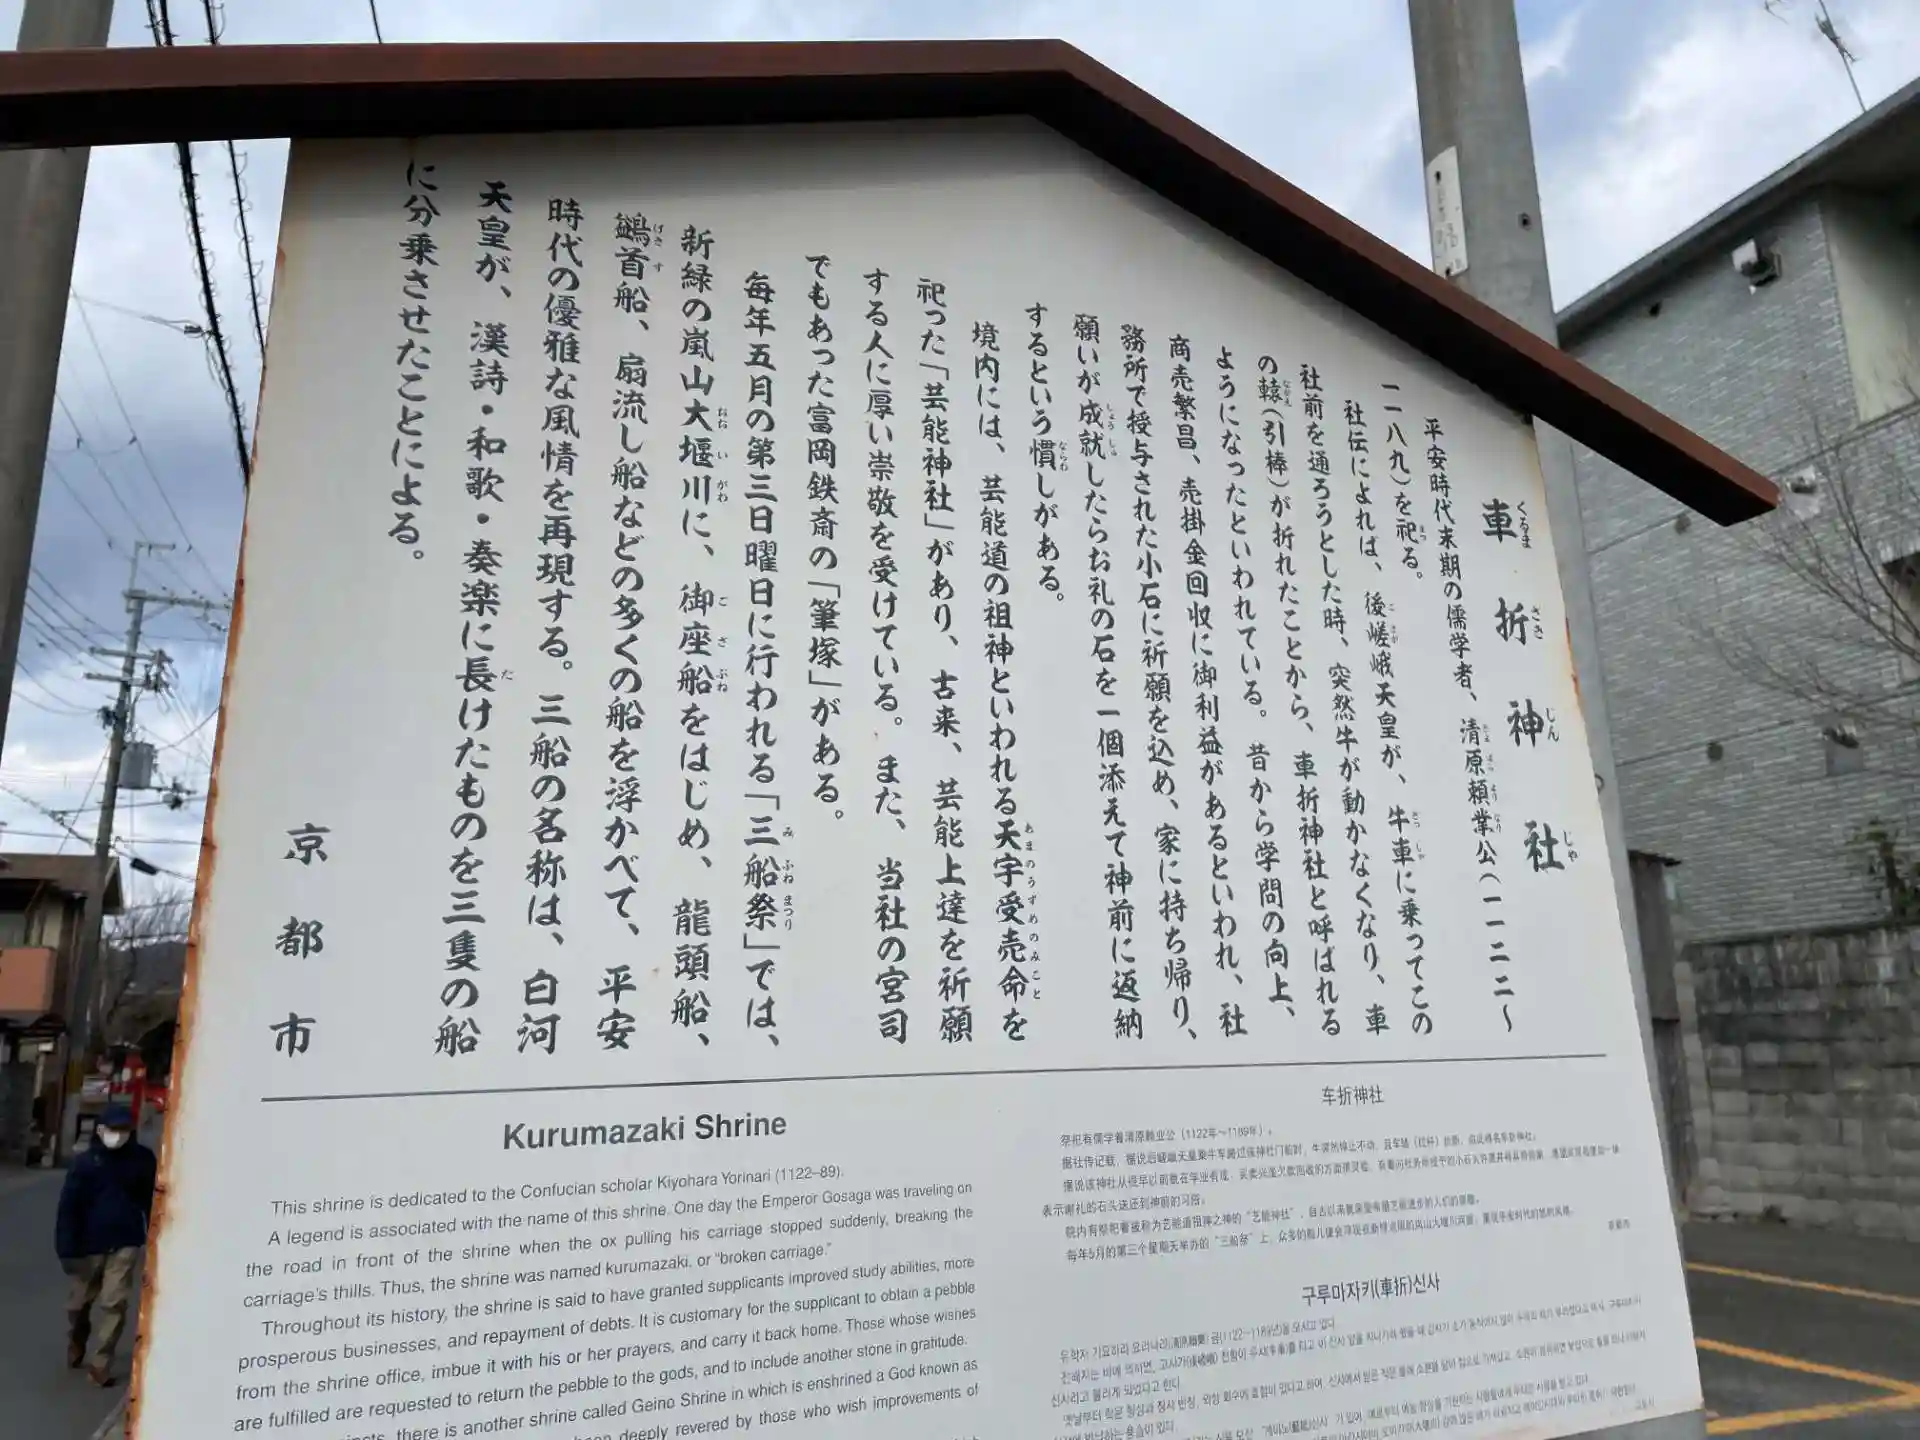 車折神社
平安時代末期の儒学者、清原頼業公(一一二二~
一一八九)を祀る。
社伝によれば、後嵯峨天皇が、牛車に乗ってこの
社前を通ろうとした時、突然牛が動かなくなり、車
の轅(引棒)が折れたことから、車折神社と呼ばれる
ようになったといわれている。昔から学問の向上、
商売繁昌、売掛金回収に御利益があるといわれ、社
務所で授与された小石に祈願を込め、家に持ち帰り、
願いが成就したらお礼の石を一個添えて神前に返納
するという慣しがある。
境内には、芸能道の祖神といわれる天宇受売命を
祀った「芸能神社」があり、古来、芸能上達を祈願
する人に厚い崇敬を受けている。また、当社の宮司
でもあった富岡鉄斎の「筆塚」がある。
毎年五月の第三日曜日に行われる「三船祭」では、
新緑の嵐山大堰川に、御座船をはじめ、龍頭船、
鷁首船、扇流し船などの多くの船を浮かべて、平安
時代の優雅な風情を再現する。三船の名称は、白河
天皇が、漢詩・和歌・奏楽に長けたものを三隻の船
に分乗させたことによる。
京都市
Kurumazaki Shrine
This shrine is dedicated to the Confucian scholar Kiyohara Yorinari (1122–89).
A legend is associated with the name of this shrine. One day the Emperor Gosaga was traveling on
the road in front of the shrine when the ox pulling his carriage stopped suddenly, breaking the
carriage's thills. Thus, the shrine was named kurumazaki. or "broken carriage."
Throughout its history, the shrine is said to have granted supplicants improved study abilities, more
prosperous businesses, and repayment of debts. It is customary for the supplicant to obtain a pebble
from the shrine office, imbue it with his or her prayers, and carry it back home. Those whose wishes
are fulfilled are requested to return the pebble to the gods, and to include another stone in gratitude.
there is another shrine called Geino Shrine in which is enshrined a God known as
deeply revered by those who wish improvements of
车折神社
祭祀有儒学者清原赖业公(1122年～1189年)。
据社传记载，据说后嵯峨天皇乘牛车路过该神社门前时，牛突然停止不动，且车辕(拉杆)折断，由此得名车折神社。
表示谢礼的石头送还到神前的习俗。
院内有祭祀着被称为艺能道祖神之神的"艺能神社"，自古以来
每年5月的第三个星期天举办的"三船祭"上，
구루마자키(車折)신사
신사라고 불리게 되었다고 한다.